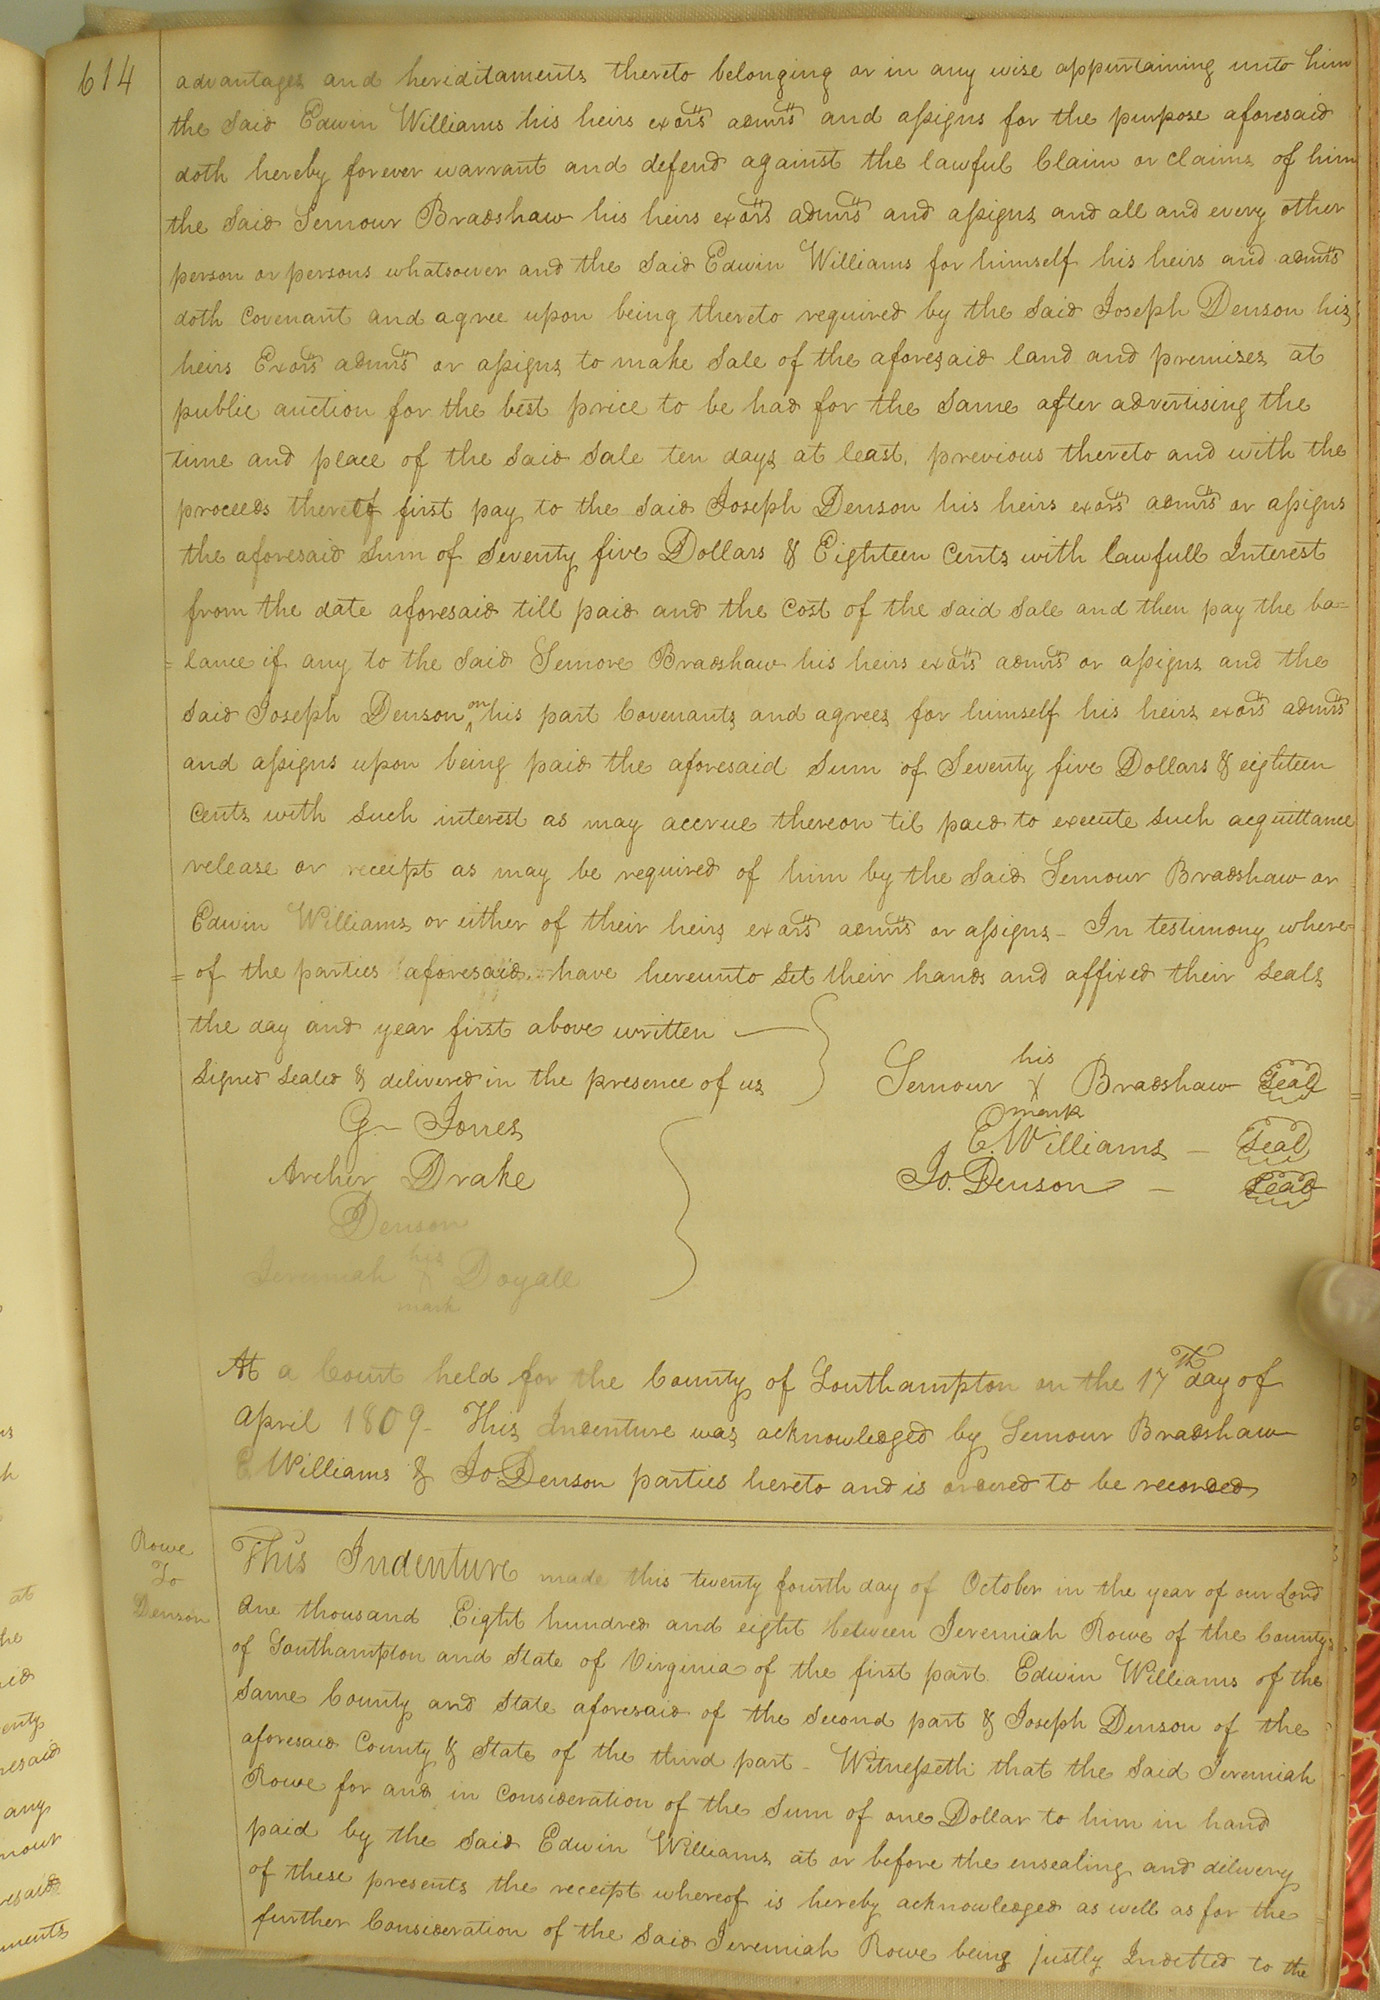 614
advantages and hereditaments thereto belonging or in any wise appurtaining unto him
the Said Edwin Williams his heirs exors admrs and assigns for the purpose aforesaid
doth hereby forever warrant and defend against the lawful Claim or claims of him
the Said Semour Bradshaw his heirs exors admrs and assigns and all and every other
person or persons whatsoever and the Said Edwin Williams for himself his heirs and admrs
doth Covenant and agree upon being thereto required by the Said Joseph Denson his
heirs Exors admrs or assigns to make Sale of the aforesaid land and premises at
public auction for the best price to be had for the Same after advertising the
time and place of the Said Sale ten days at least, previous thereto and with the
proceeds thereof first pay to the Said Joseph Denson his heirs exors admrs or assigns
the aforesaid Sum of Seventy five Dollars & Eighteen Cents with lawfull Interest
from the date aforesaid till paid and the Cost of the Said Sale and then pay the ba=
=lance if any to the Said Semore Bradshaw his heirs exors admrs or assigns and the
Said Joseph Denson on his part Covenants and agrees for himself his heirs exors admrs
and assigns upon being paid the aforesaid Sum of Seventy five Dollars & eighteen
Cents with such interest as may accrue thereon til paid to execute such acquittance
release or receipt as may be required of him by the Said Semour Bradshaw or
Edwin Williams or either of their heirs exors admrs or assigns - In testimony where=
=of the parties aforesaid have hereunto Set their hands and affixed their Seals
the day and year first above written
Signed Sealed & delivered in the presence of us
G- Jones
Archer Drake
Denson
Jeremiah his X mark Doyall
Semour his X mark Bradshaw Seal
E. Williams - Seal
Jo. Denson - Seal
At a Court held for the County of Southampton on the 17th day of
April 1809 - This Indenture was acknowledged by Semour Bradshaw
E Williams & Jo Denson parties hereto and is ordered to be recorded
Rowe
To
Denson
This Indenture made this twenty fourth day of October in the year of our Lord
One thousand Eight hundred and eight between Jeremiah Rowe of the County
of Southampton and State of Virginia of the first part Edwin Williams of the
Same County and State aforesaid of the Second part & Joseph Denson of the
aforesaid County & State of the third part - Witnesseth that the Said Jeremiah
Rowe for and in Consideration of the Sum of one Dollar to him in hand
paid by the Said Edwin Williams at or before the ensealing and delivery
of these presents the receipt whereof is hereby acknowledged as well as for the
further Consideration of the Said Jeremiah Rowe being justly Indetted to the